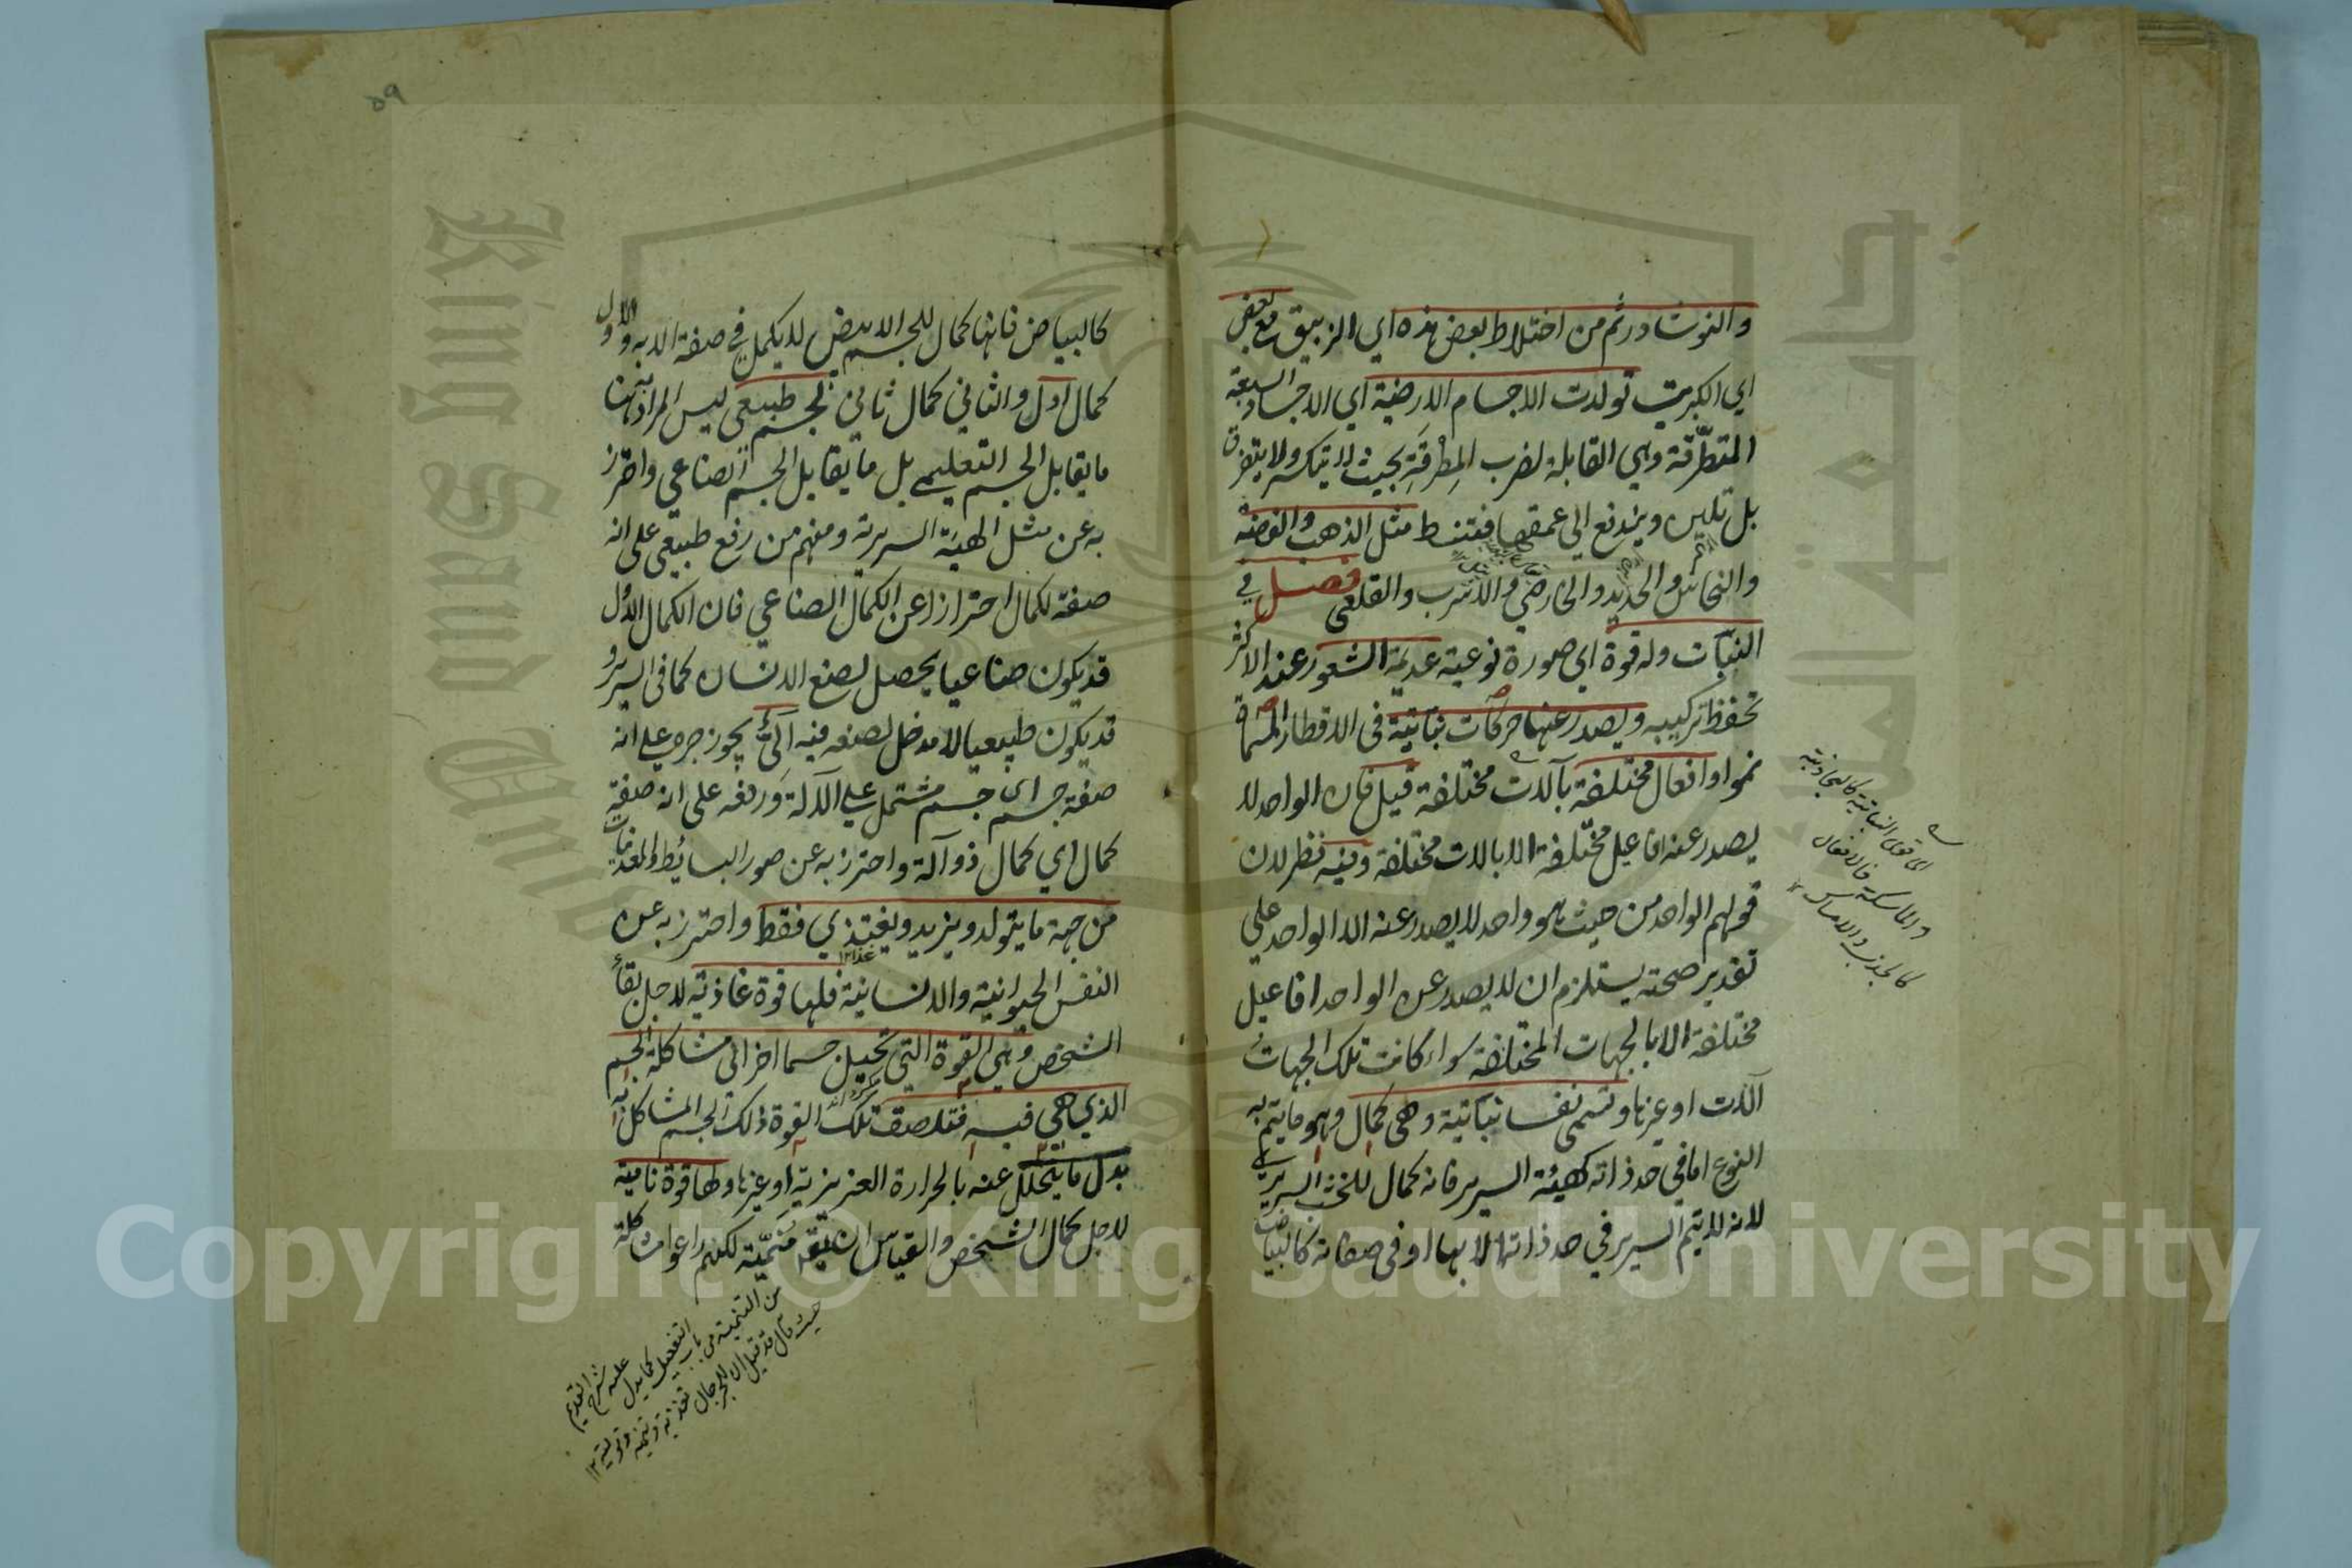 والنوشادر ثم من اختلاط بعض هذه اي الزيبق مع بعض
اي الكبريت تولدت الاجسام الارضية اي الاجساد السبعة
المتطرّقة وهي القابلة لضرب المِطْرقَةِ بحيث لا يتكسر ولا يتفرق
بل تلين ويندفع الى عمقها فتنبسط مثل الذهب والفضة
والنحاس والحديد والخارصيني والاسرب والقلعي فصل في
النبات وله قوة اي صورة نوعية عديمة الشعور عند الاكثر
تحفظ تركيبه ويصدر عنها حركات نباتية في الاقطار المسماة
نموا وافعال مختلفة بآلات مختلفة قيل فان الواحد لا
يصدر عنه افاعيل مختلفة الا بالات مختلفة وفيه نظر لان
قولهم الواحد من حيث هو واحد لا يصدر عنه الا الواحد على
تقدير صحته يستلزم ان لا يصدر عن الواحد افاعيل
مختلفة الا بالجهات المختلفة سواء كانت تلك الجهات
آلات او غيرها وتسمى نفسا نباتية وهى كمال وهو ما يتم به
النوع اما في حد ذاته كهيئة السرير فانه كمال للخشب السريري
لانه لا يتم السرير في حد ذاته الا بها او في صفاته كالبياض
اى قوى النباتية كالجاذبة
والماسكة فالافعال
كالجذب والامساك
٥٩
كالبياض فانها كمال للجسم الابيض لا يكمل في صفة الا به والاول
كمال اول والثاني كمال ثاني لجسم طبيعي ليس المراد به هنا
ما يقابل الجسم التعليمي بل ما يقابل الجسم الصناعي واحترز
به عن مثل الهيئة السريرية ومنهم من رفع طبيعي على انه
صفة لكمال احترازا عن الكمال الصناعي فان الكمال الاول
قد يكون صناعيا يحصل لصنع الانسان كما في السرير و
قد يكون طبيعيا لا مدخل لصنعه فيه آليٍّ يجوز جره على انه
صفة جسم اى جسم مشتمل على الآلة ورفعه على انه صفة
كمال اي كمال ذو آلة واحترز به عن صور البسائط والمعدنيات
من جهة ما يتولد ويزيد ويغتذي فقط واحترز به عن
النفس الحيوانية والانسانية فلها قوة غاذية لاجل بقاء
الشخص وهي القوة التي تحيل جسما اخر الى مشاكلة الجسم
الذي هي فيه فتلصق تلك القوة ذلك الجسم المشاكل به
بدل ما يتحلل عنه بالحرارة الغريزية او غيرها ولها قوة نامية
لاجل كمال الشخص والقياس ان يقو منمّية لكنهم راعوا مشاكلة
من التنمية من باب
التفعيل كما يدل
عليه شرح القديم